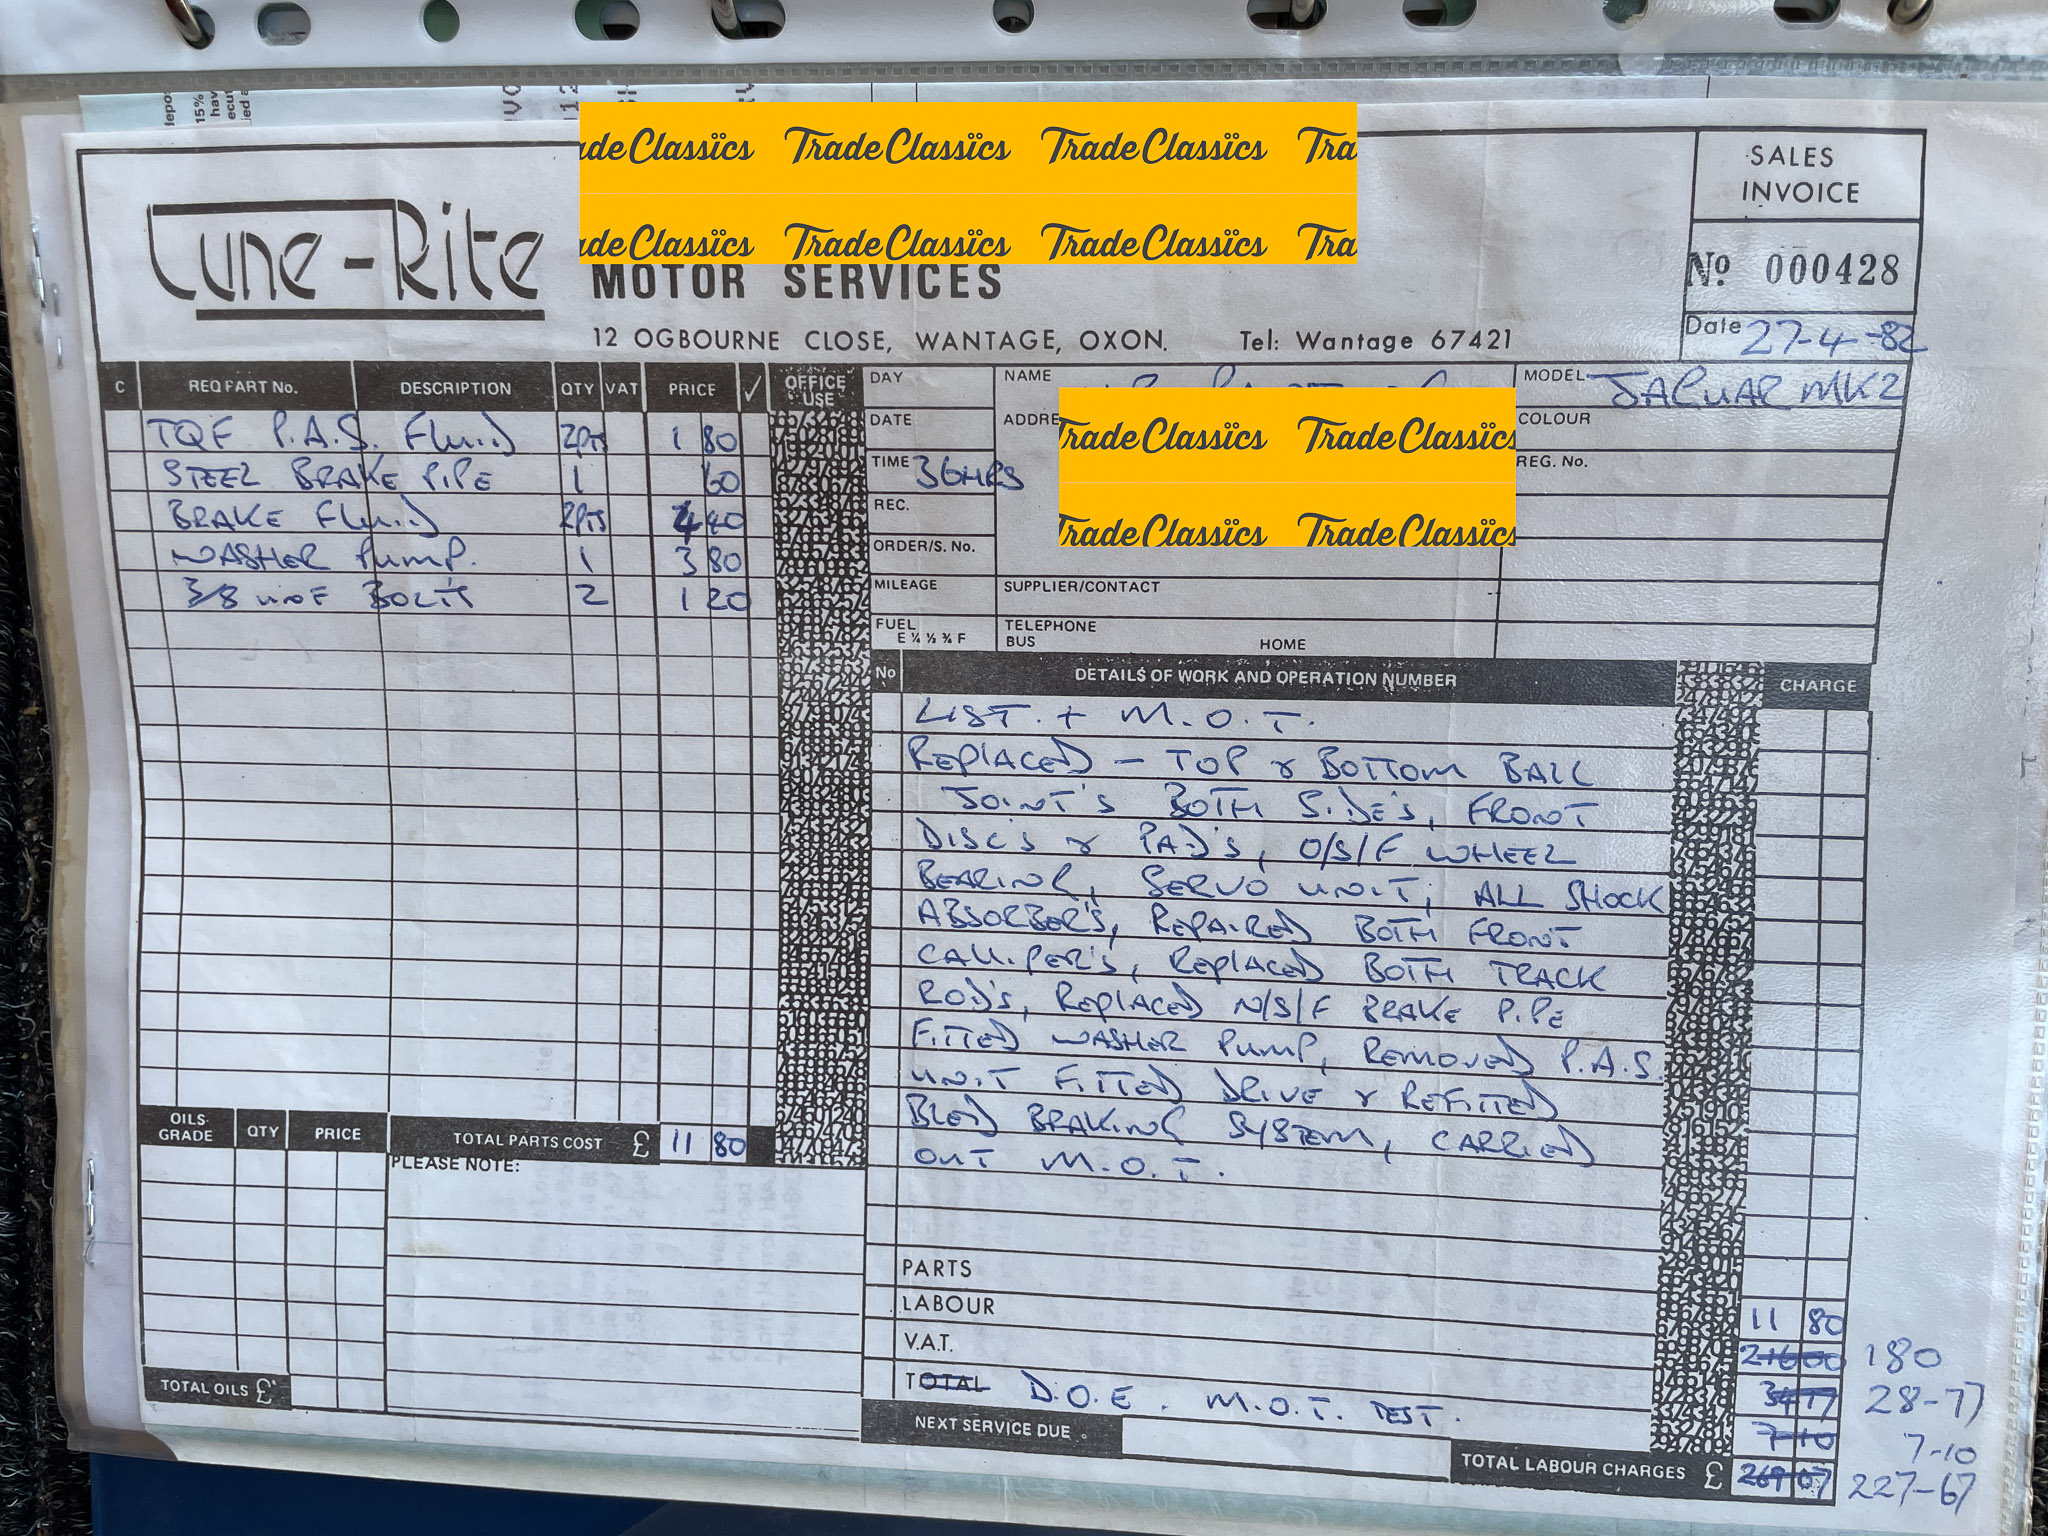 Trade Classics Trade Classics
Trade Classics Trade Classics
Tune-Rite
MOTOR SERVICES
12 OGBOURNE CLOSE, WANTAGE, OXON. Tel: Wantage 67421
SALES
INVOICE
No 000428
Date 27-4-82
C REQ PART No. DESCRIPTION QTY VAT PRICE ✓ OFFICE USE
TQF P.A.S. Fluid 2Pts 1 80
STEEL BRAKE PIPE 1 60
BRAKE Fluid 2Pts 4 40
WASHER Pump. 1 3 80
3/8 UNF BOLTS 2 1 20
TOTAL PARTS COST £ 11 80
OILS GRADE QTY PRICE
PLEASE NOTE:
TOTAL OILS £
DAY
DATE
TIME 36HRS
REC.
ORDER/S. No.
MILEAGE
FUEL
E ¼ ½ ¾ F
NAME
ADDRE
Trade Classics Trade Classics
Trade Classics Trade Classics
SUPPLIER/CONTACT
TELEPHONE
BUS HOME
MODEL JAGUAR MK2
COLOUR
REG. No.
No DETAILS OF WORK AND OPERATION NUMBER CHARGE
LIST. + M.O.T.
REPLACED - TOP & BOTTOM BALL
JOINT'S BOTH SIDE'S, FRONT
DISC'S & PAD'S, O/S/F WHEEL
BEARING, SERVO UNIT, ALL SHOCK
ABSORBER'S, REPAIRED BOTH FRONT
CALLIPER'S, REPLACED BOTH TRACK
ROD'S, REPLACED N/S/F BRAKE PIPE
FITTED WASHER PUMP, REMOVED P.A.S
UNIT FITTED DRIVE & REFITTED
BLED BRAKING SYSTEM, CARRIED
OUT M.O.T.
PARTS
LABOUR 11 80
V.A.T. 21600 180
TOTAL D.O.E. M.O.T. TEST. 34 77 28-77
7 10 7-10
NEXT SERVICE DUE
TOTAL LABOUR CHARGES £ 269 67 227-67